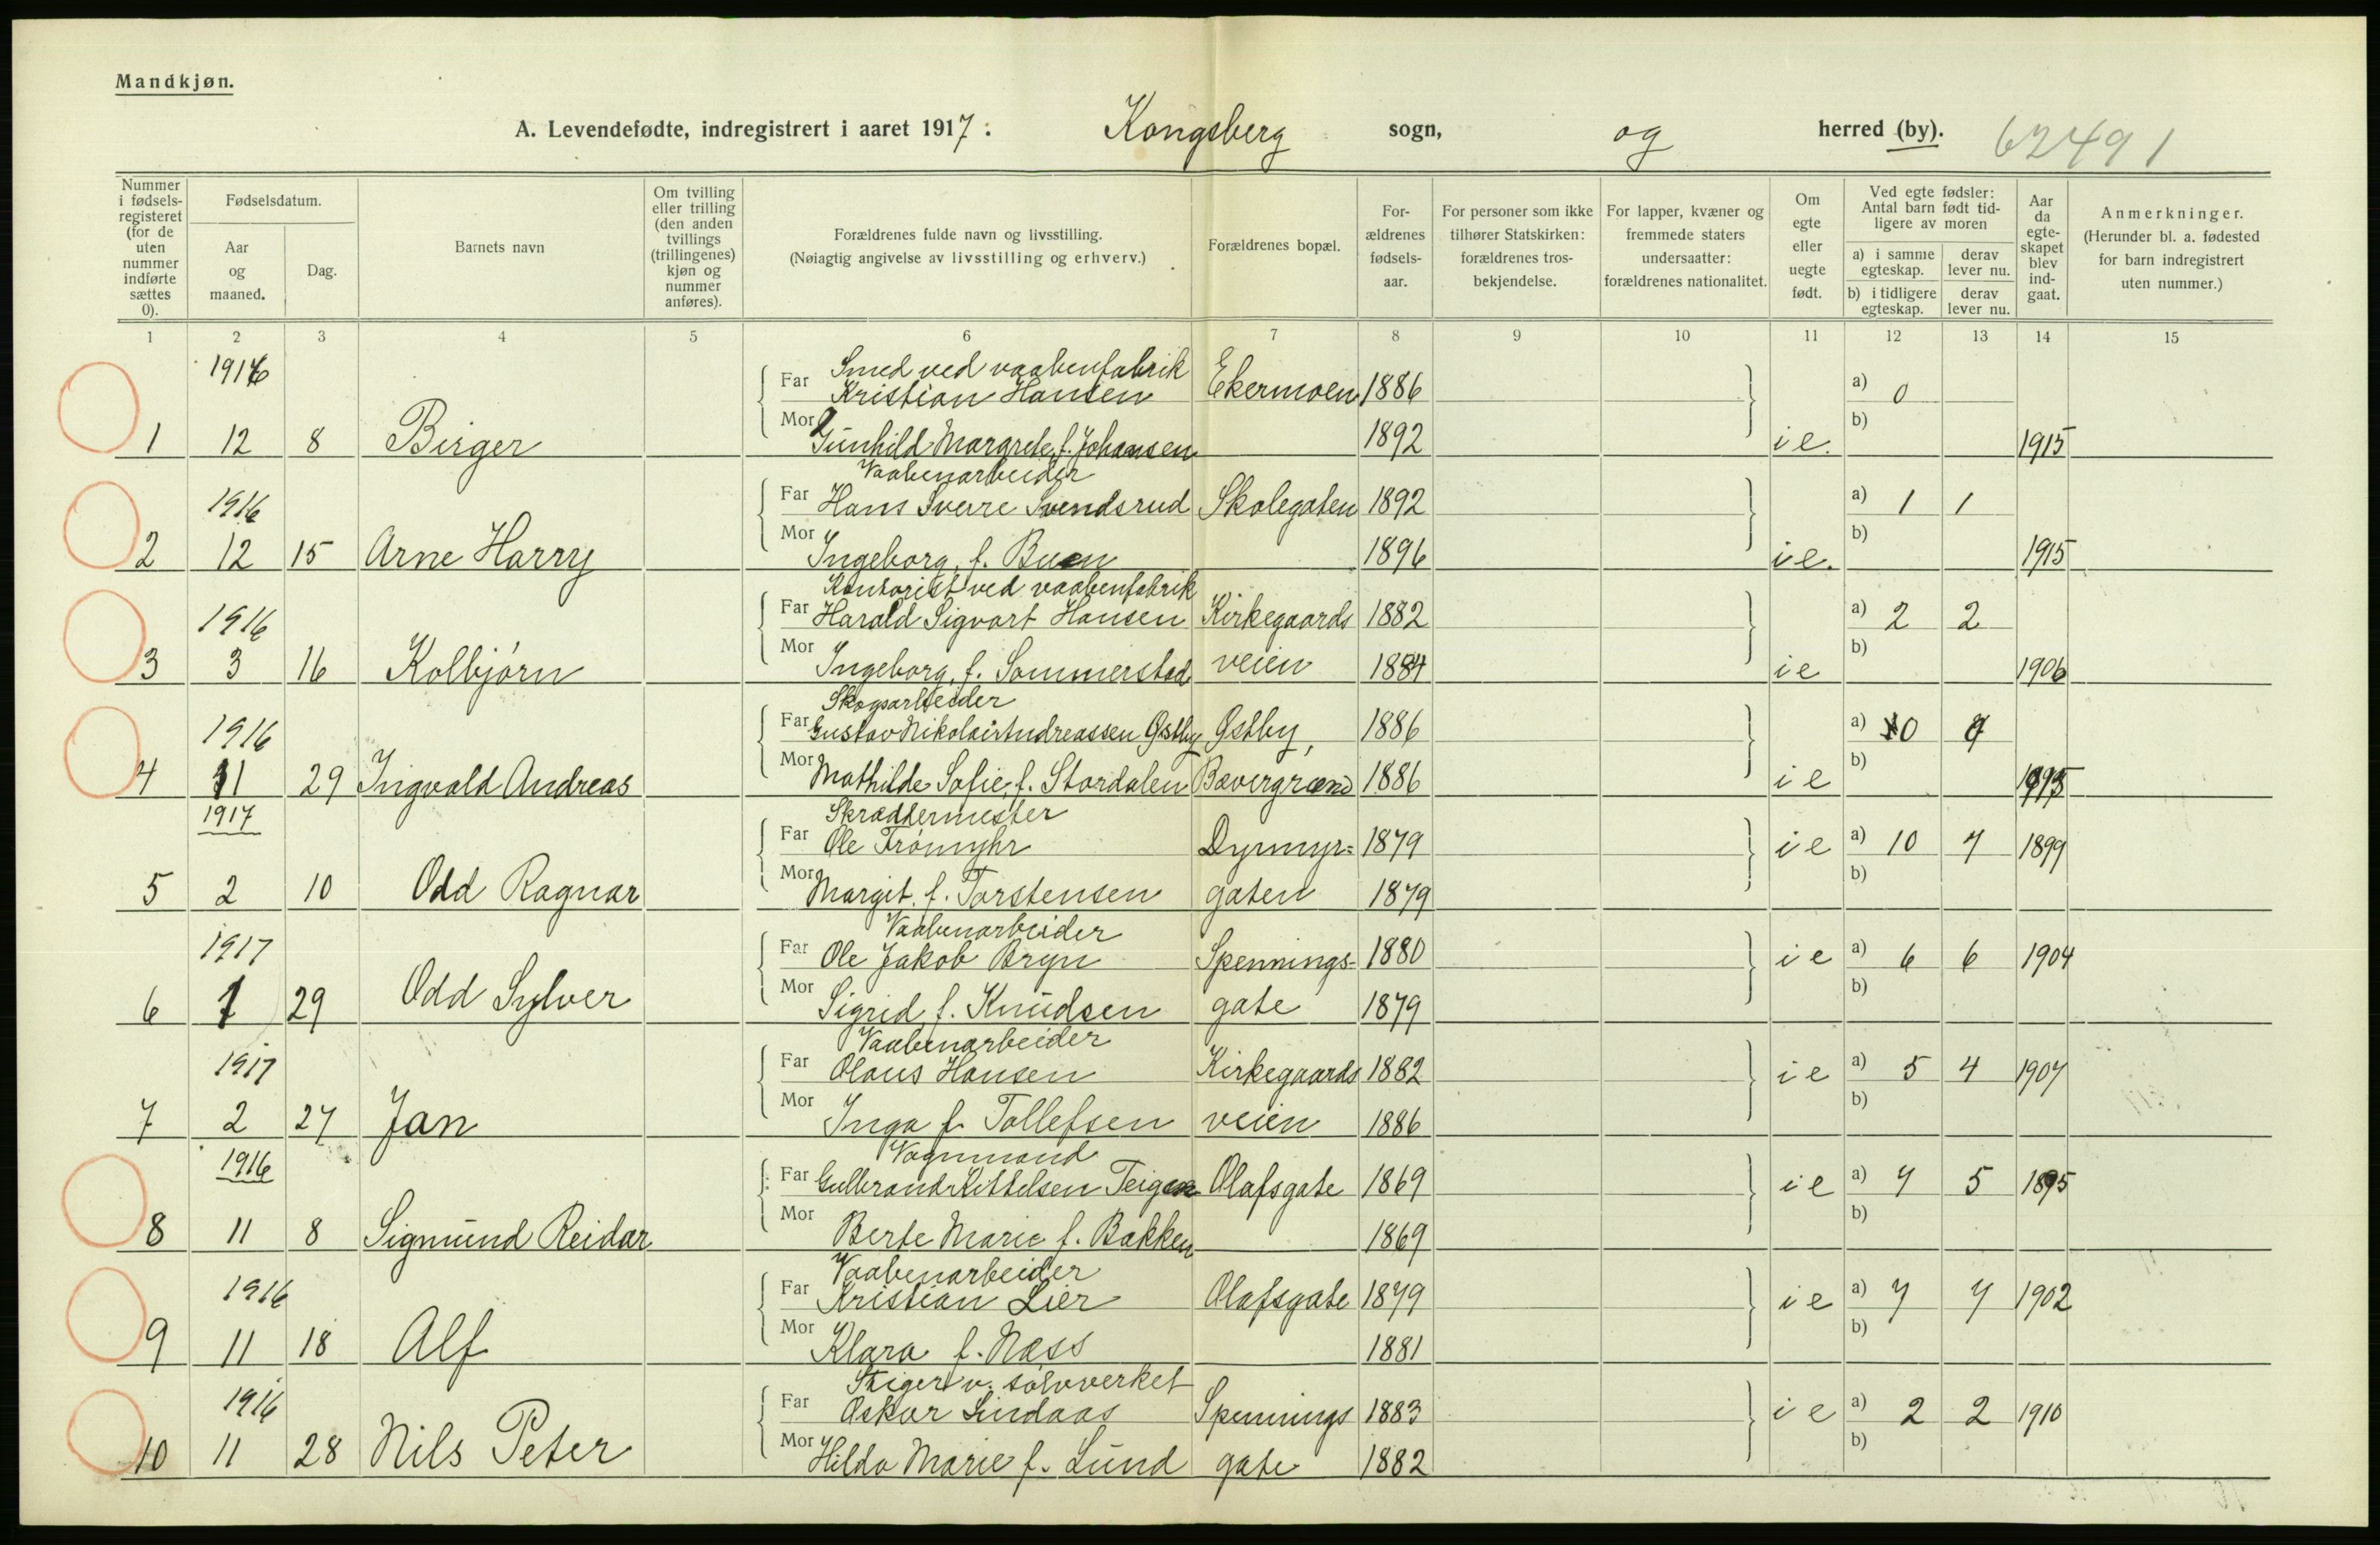 Mandkjøn.
A. Levendefødte, indregistrert i aaret 1917: Kongsberg sogn, og herred (by). 62491
Nummer i fødsels-registeret (for de uten nummer indførte sættes 0).
Fødselsdatum.
Aar og maaned.
Dag.
Barnets navn
Om tvilling eller trilling (den anden tvillings (trillingenes) kjøn og nummer anføres).
Forældrenes fulde navn og livsstilling.
(Nøiagtig angivelse av livsstilling og erhverv.)
Forældrenes bopæl.
For-ældrenes fødsels-aar.
For personer som ikke tilhører Statskirken: forældrenes tros-bekjendelse.
For lapper, kvæner og fremmede staters undersaatter: forældrenes nationalitet.
Om egte eller uegte født.
Ved egte fødsler: Antal barn født tid-ligere av moren
a) i samme egteskap. derav lever nu.
b) i tidligere egteskap. derav lever nu.
Aar da egte-skapet blev ind-gaat.
Anmerkninger.
(Herunder bl. a. fødested for barn indregistrert uten nummer.)
1 2 3 4 5 6 7 8 9 10 11 12 13 14 15
1916 Smed ved vaabenfabrik
Far Kristian Hansen Ekermoen 1886 a) 0
1 12 8 Birger Mor Gunhild Margrete, f. Johansen 1892 ie. b) 1915
Vaabenarbeider
1916 Far Hans Sverre Svendsrud Skolegaten 1892 a) 1 1
2 12 15 Arne Harry Mor Ingeborg, f. Buen 1896 ie. b) 1915
Kontorist ved vaabenfabrik
1916 Far Harald Sigvart Hansen Kirkegaards 1882 a) 2 2
3 3 16 Kolbjørn Mor Ingeborg, f. Sommerstad veien 1884 ie b) 1906
Skogsarbeider
1916 Far Gustav Nikolai Andreassen Østby Østby, 1886 a) 0
4 11 29 Ingvald Andreas Mor Mathilde Sofie, f. Stordalen Bævergrænd 1886 ie b)
1917 Skræddermester
Far Ole Frømyhr Dyrmyr= 1879 ie a) 10 7 1899
5 2 10 Odd Ragnar Mor Margit. f. Torstensen gaten 1879 b)
Vaabenarbeider
1917 Far Ole Jakob Bryn Spennings- 1880 ie a) 6 6 1904
6 1 29 Odd Sylver Mor Sigrid f. Knudsen gate 1879 b)
Vaabenarbeider
1917 Far Olaus Hansen Kirkegaards 1882 ie a) 5 4 1907
7 2 27 Jan Mor Inga f. Tollefsen veien 1886 b)
Vognmand
1916 Far Gulbrand Kittelsen Teigen Olafsgate 1869 ie a) 7 5 1895
8 11 8 Sigmund Reidar Mor Berte Marie f. Bakken 1869 b)
Vaabenarbeider
1916 Far Kristian Lier Olafsgate 1879 ie a) 7 7 1902
9 11 18 Alf Mor Klara f. Næss 1881 b)
Stiger v. sølvverket
1916 Far Oskar Lindaas Spennings 1883 ie a) 2 2 1910
10 11 28 Nils Peter Mor Hilda Marie f. Lund gate 1882 b)